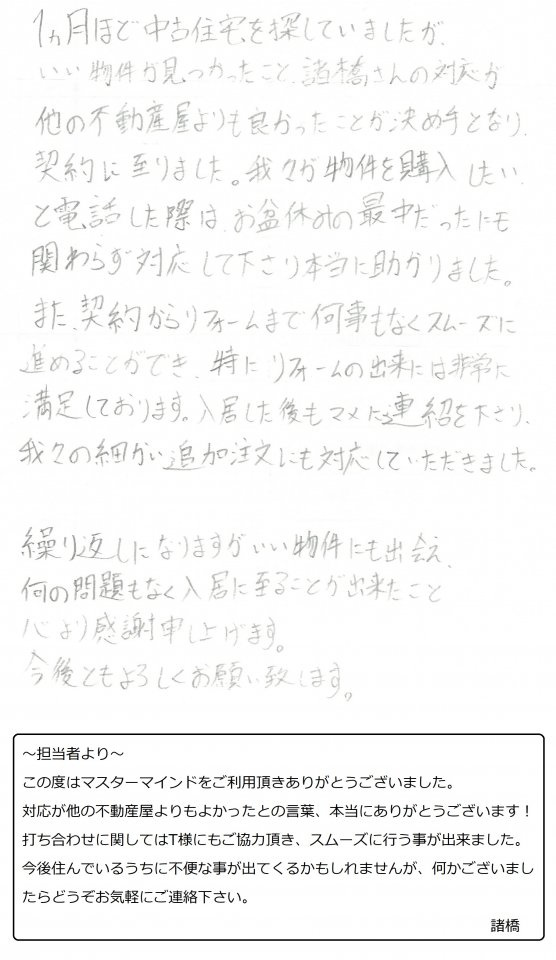 1ヵ月ほど中古住宅を探していましたが、
いい物件が見つかったこと、諸橋さんの対応が
他の不動産屋よりも良かったことが決め手となり、
契約に至りました。我々が物件を購入したい、
と電話した際は、お盆休みの最中だったにも
関わらず対応して下さり本当に助かりました。
また、契約からリフォームまで何事もなくスムーズに
進めることができ、特にリフォームの出来には非常に
満足しております。入居した後もマメに連絡を下さり、
我々の細かい追加注文にも対応していただきました。
繰り返しになりますがいい物件にも出会え、
何の問題もなく入居に至ることが出来たこと
心より感謝申し上げます。
今後ともよろしくお願い致します。
～担当者より～
この度はマスターマインドをご利用頂きありがとうございました。
対応が他の不動産屋よりもよかったとの言葉、本当にありがとうございます！
打ち合わせに関してはT様にもご協力頂き、スムーズに行う事が出来ました。
今後住んでいるうちに不便な事が出てくるかもしれませんが、何かございまし
たらどうぞお気軽にご連絡下さい。
諸橋